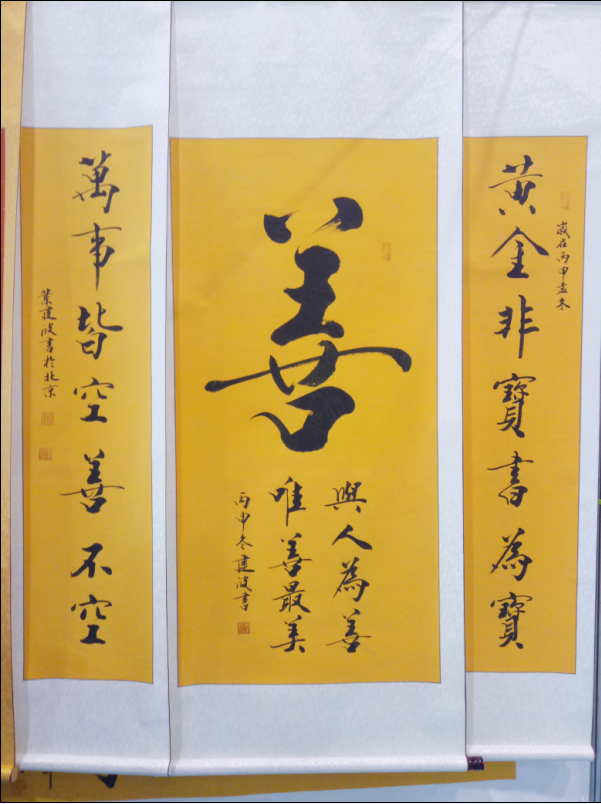 黄金非寶書為寶
歲在丙申孟冬
善
與人為善
唯善最美
丙申冬建波書
萬事皆空善不空
葉建波書於北京